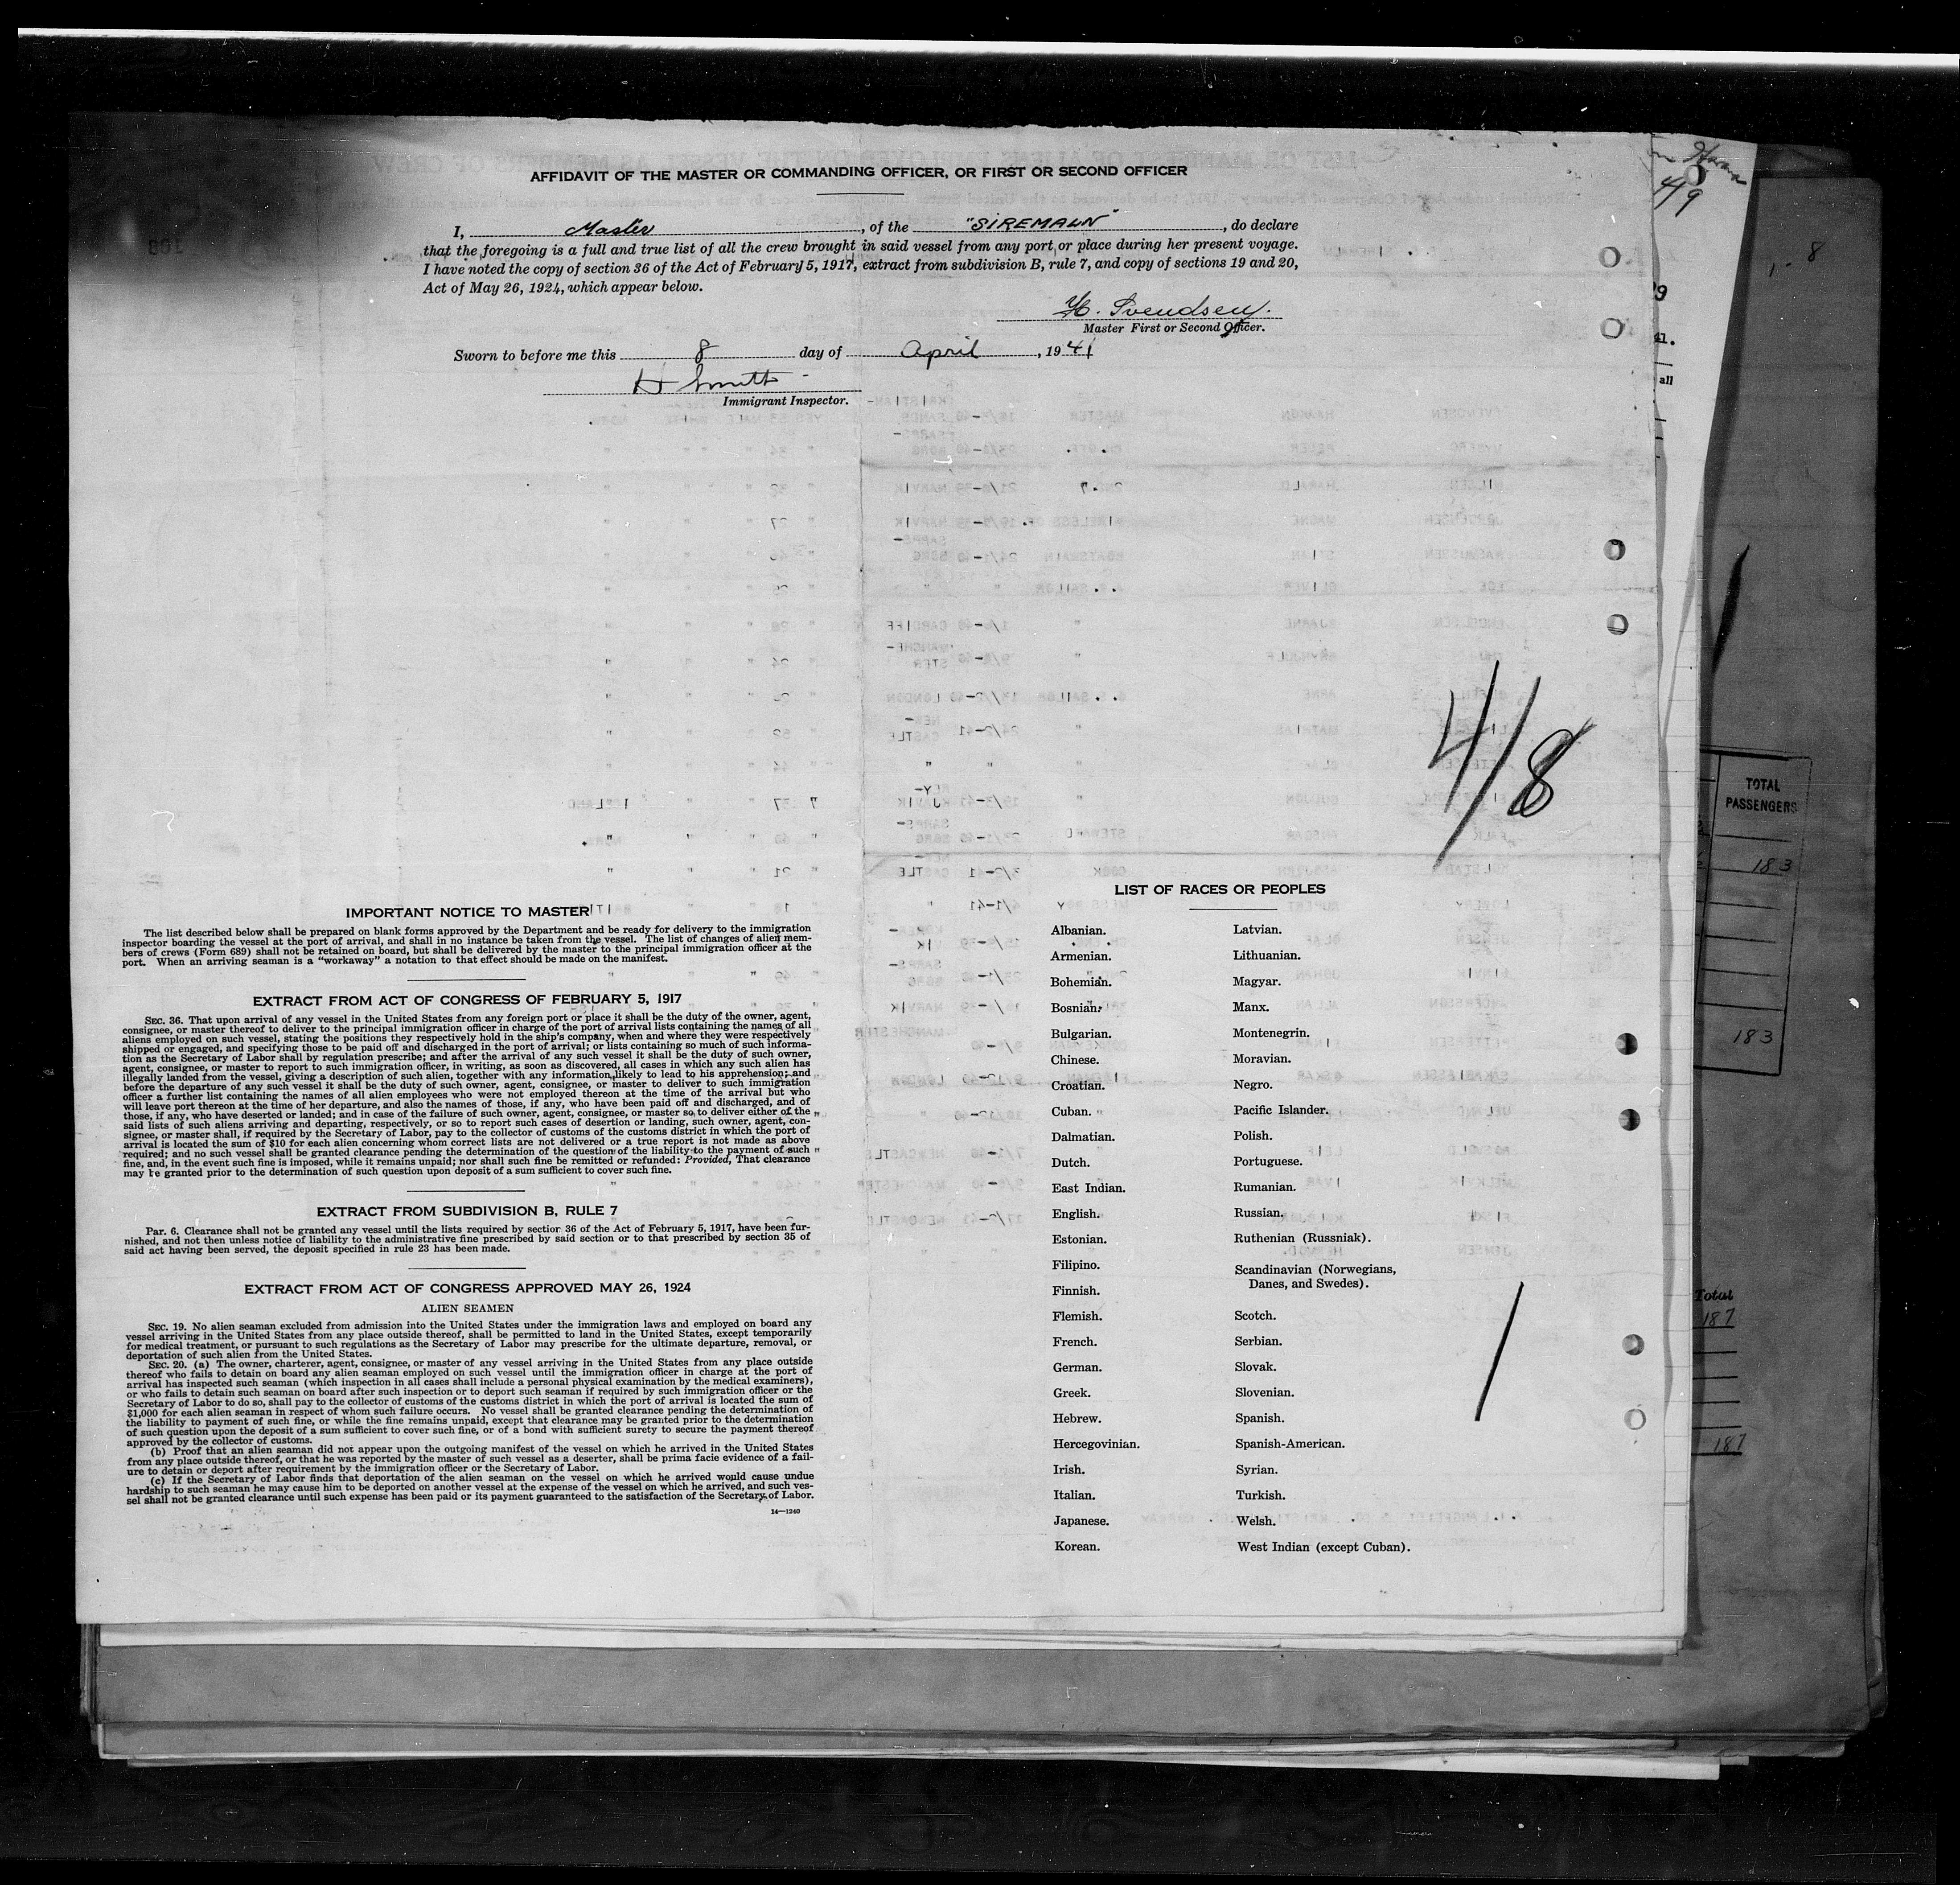 AFFIDAVIT OF THE MASTER OR COMMANDING OFFICER, OR FIRST OR SECOND OFFICER
I, Master, of the "SIREMALN", do declare
that the foregoing is a full and true list of all the crew brought in said vessel from any port or place during her present voyage.
I have noted the copy of section 36 of the Act of February 5, 1917, extract from subdivision B, rule 7, and copy of sections 19 and 20,
Act of May 26, 1924, which appear below.
H. Svendsen.
Master First or Second Officer.
Sworn to before me this 8 day of April, 1941
H Smith
Immigrant Inspector.
4/8
IMPORTANT NOTICE TO MASTER
The list described below shall be prepared on blank forms approved by the Department and be ready for delivery to the immigration
inspector boarding the vessel at the port of arrival, and shall in no instance be taken from the vessel. The list of changes of alien mem-
bers of crews (Form 689) shall not be retained on board, but shall be delivered by the master to the principal immigration officer at the
port. When an arriving seaman is a "workaway" a notation to that effect should be made on the manifest.
EXTRACT FROM ACT OF CONGRESS OF FEBRUARY 5, 1917
SEC. 36. That upon arrival of any vessel in the United States from any foreign port or place it shall be the duty of the owner, agent,
consignee, or master thereof to deliver to the principal immigration officer in charge of the port of arrival lists containing the names of all
aliens employed on such vessel, stating the positions they respectively hold in the ship's company, when and where they were respectively
shipped or engaged, and specifying those to be paid off and discharged in the port of arrival; or lists containing so much of such informa-
tion as the Secretary of Labor shall by regulation prescribe; and after the arrival of any such vessel it shall be the duty of such owner,
agent, consignee, or master to report to such immigration officer, in writing, as soon as discovered, all cases in which any such alien has
illegally landed from the vessel, giving a description of such alien, together with any information likely to lead to his apprehension; and
before the departure of any such vessel it shall be the duty of such owner, agent, consignee, or master to deliver to such immigration
officer a further list containing the names of all alien employees who were not employed thereon at the time of the arrival but who
will leave port thereon at the time of her departure, and also the names of those, if any, who have been paid off and discharged, and of
those, if any, who have deserted or landed; and in case of the failure of such owner, agent, consignee, or master so to deliver either of the
said lists of such aliens arriving and departing, respectively, or so to report such cases of desertion or landing, such owner, agent, con-
signee, or master shall, if required by the Secretary of Labor, pay to the collector of customs of the customs district in which the port of
arrival is located the sum of $10 for each alien concerning whom correct lists are not delivered or a true report is not made as above
required; and no such vessel shall be granted clearance pending the determination of the question of the liability to the payment of such
fine, and, in the event such fine is imposed, while it remains unpaid; nor shall such fine be remitted or refunded: Provided, That clearance
may be granted prior to the determination of such question upon deposit of a sum sufficient to cover such fine.
EXTRACT FROM SUBDIVISION B, RULE 7
Par. 6. Clearance shall not be granted any vessel until the lists required by section 36 of the Act of February 5, 1917, have been fur-
nished, and not then unless notice of liability to the administrative fine prescribed by said section or to that prescribed by section 35 of
said act having been served, the deposit specified in rule 23 has been made.
EXTRACT FROM ACT OF CONGRESS APPROVED MAY 26, 1924
ALIEN SEAMEN
SEC. 19. No alien seaman excluded from admission into the United States under the immigration laws and employed on board any
vessel arriving in the United States from any place outside thereof, shall be permitted to land in the United States, except temporarily
for medical treatment, or pursuant to such regulations as the Secretary of Labor may prescribe for the ultimate departure, removal, or
deportation of such alien from the United States.
SEC. 20. (a) The owner, charterer, agent, consignee, or master of any vessel arriving in the United States from any place outside
thereof who fails to detain on board any alien seaman employed on such vessel until the immigration officer in charge at the port of
arrival has inspected such seaman (which inspection in all cases shall include a personal physical examination by the medical examiners),
or who fails to detain such seaman on board after such inspection or to deport such seaman if required by such immigration officer or the
Secretary of Labor to do so, shall pay to the collector of customs of the customs district in which the port of arrival is located the sum of
$1,000 for each alien seaman in respect of whom such failure occurs. No vessel shall be granted clearance pending the determination of
the liability to payment of such fine, or while the fine remains unpaid, except that clearance may be granted prior to the determination
of such question upon the deposit of a sum sufficient to cover such fine, or of a bond with sufficient surety to secure the payment thereof
approved by the collector of customs.
(b) Proof that an alien seaman did not appear upon the outgoing manifest of the vessel on which he arrived in the United States
from any place outside thereof, or that he was reported by the master of such vessel as a deserter, shall be prima facie evidence of a fail-
ure to detain or deport after requirement by the immigration officer or the Secretary of Labor.
(c) If the Secretary of Labor finds that deportation of the alien seaman on the vessel on which he arrived would cause undue
hardship to such seaman he may cause him to be deported on another vessel at the expense of the vessel on which he arrived, and such ves-
sel shall not be granted clearance until such expense has been paid or its payment guaranteed to the satisfaction of the Secretary of Labor.
14—1240
LIST OF RACES OR PEOPLES
Albanian.
Armenian.
Bohemian.
Bosnian.
Bulgarian.
Chinese.
Croatian.
Cuban.
Dalmatian.
Dutch.
East Indian.
English.
Estonian.
Filipino.
Finnish.
Flemish.
French.
German.
Greek.
Hebrew.
Hercegovinian.
Irish.
Italian.
Japanese.
Korean.
Latvian.
Lithuanian.
Magyar.
Manx.
Montenegrin.
Moravian.
Negro.
Pacific Islander.
Polish.
Portuguese.
Rumanian.
Russian.
Ruthenian (Russniak).
Scandinavian (Norwegians,
Danes, and Swedes).
Scotch.
Serbian.
Slovak.
Slovenian.
Spanish.
Spanish-American.
Syrian.
Turkish.
Welsh.
West Indian (except Cuban).
4/9
all
TOTAL
PASSENGERS
183
183
Total
187
187